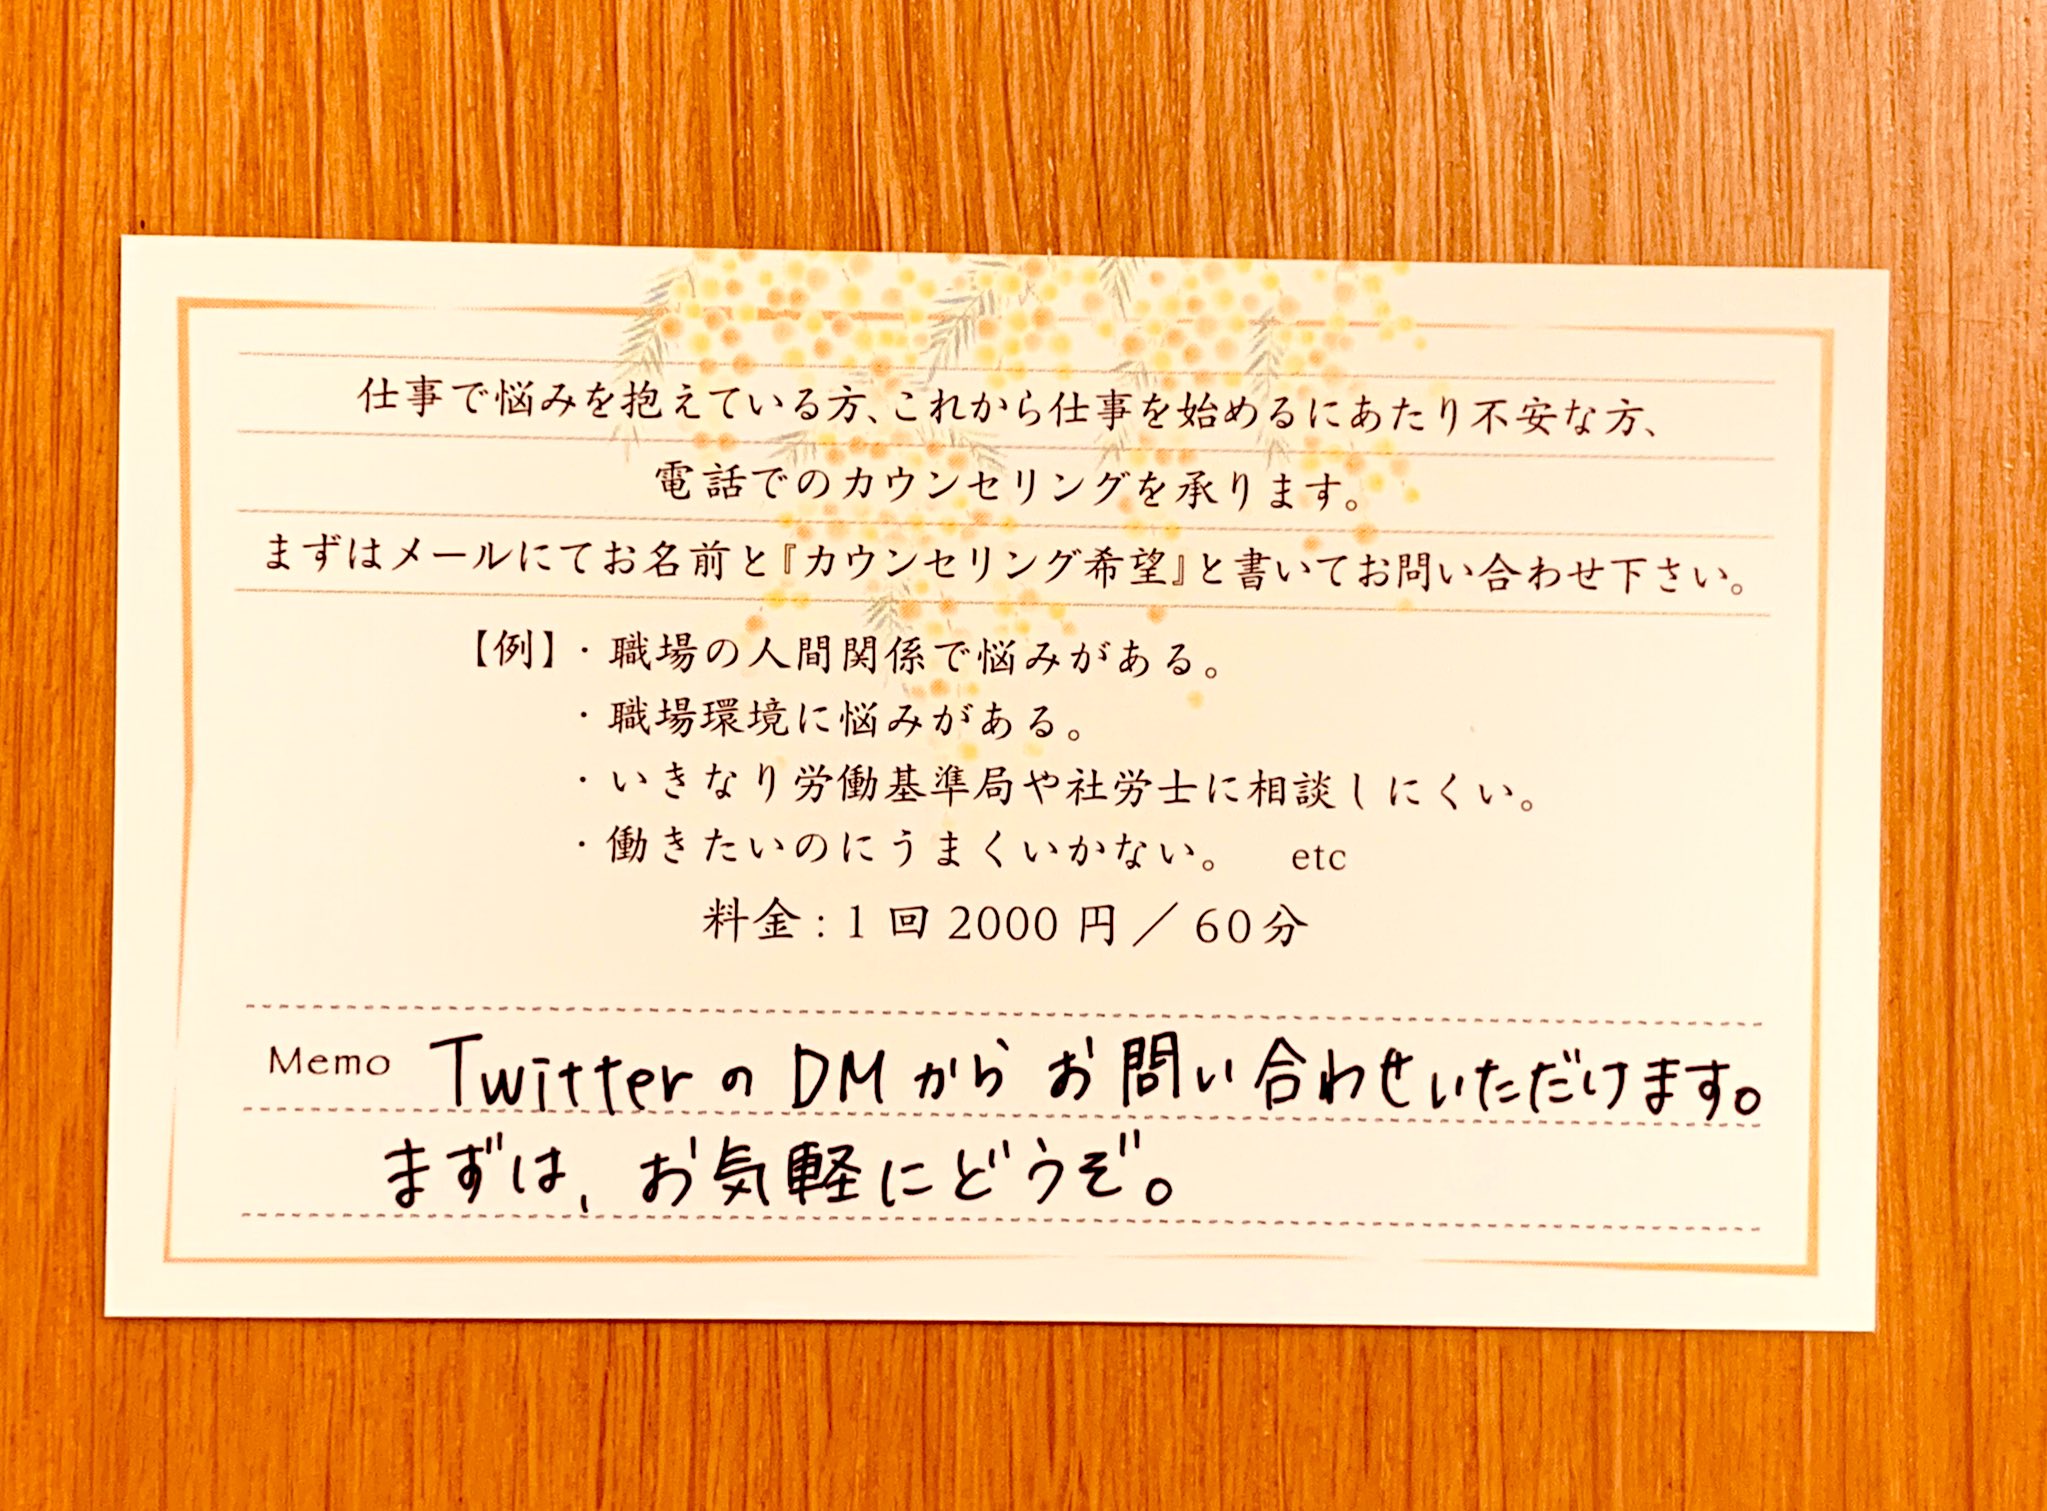 仕事で悩みを抱えている方、これから仕事を始めるにあたり不安な方、
電話でのカウンセリングを承ります。
まずはメールにてお名前と『カウンセリング希望』と書いてお問い合わせ下さい。
【例】・職場の人間関係で悩みがある。
・職場環境に悩みがある。
・いきなり労働基準局や社労士に相談しにくい。
・働きたいのにうまくいかない。 etc
料金：1回2000円／60分
Memo TwitterのDMからお問い合わせいただけます。
まずは、お気軽にどうぞ。